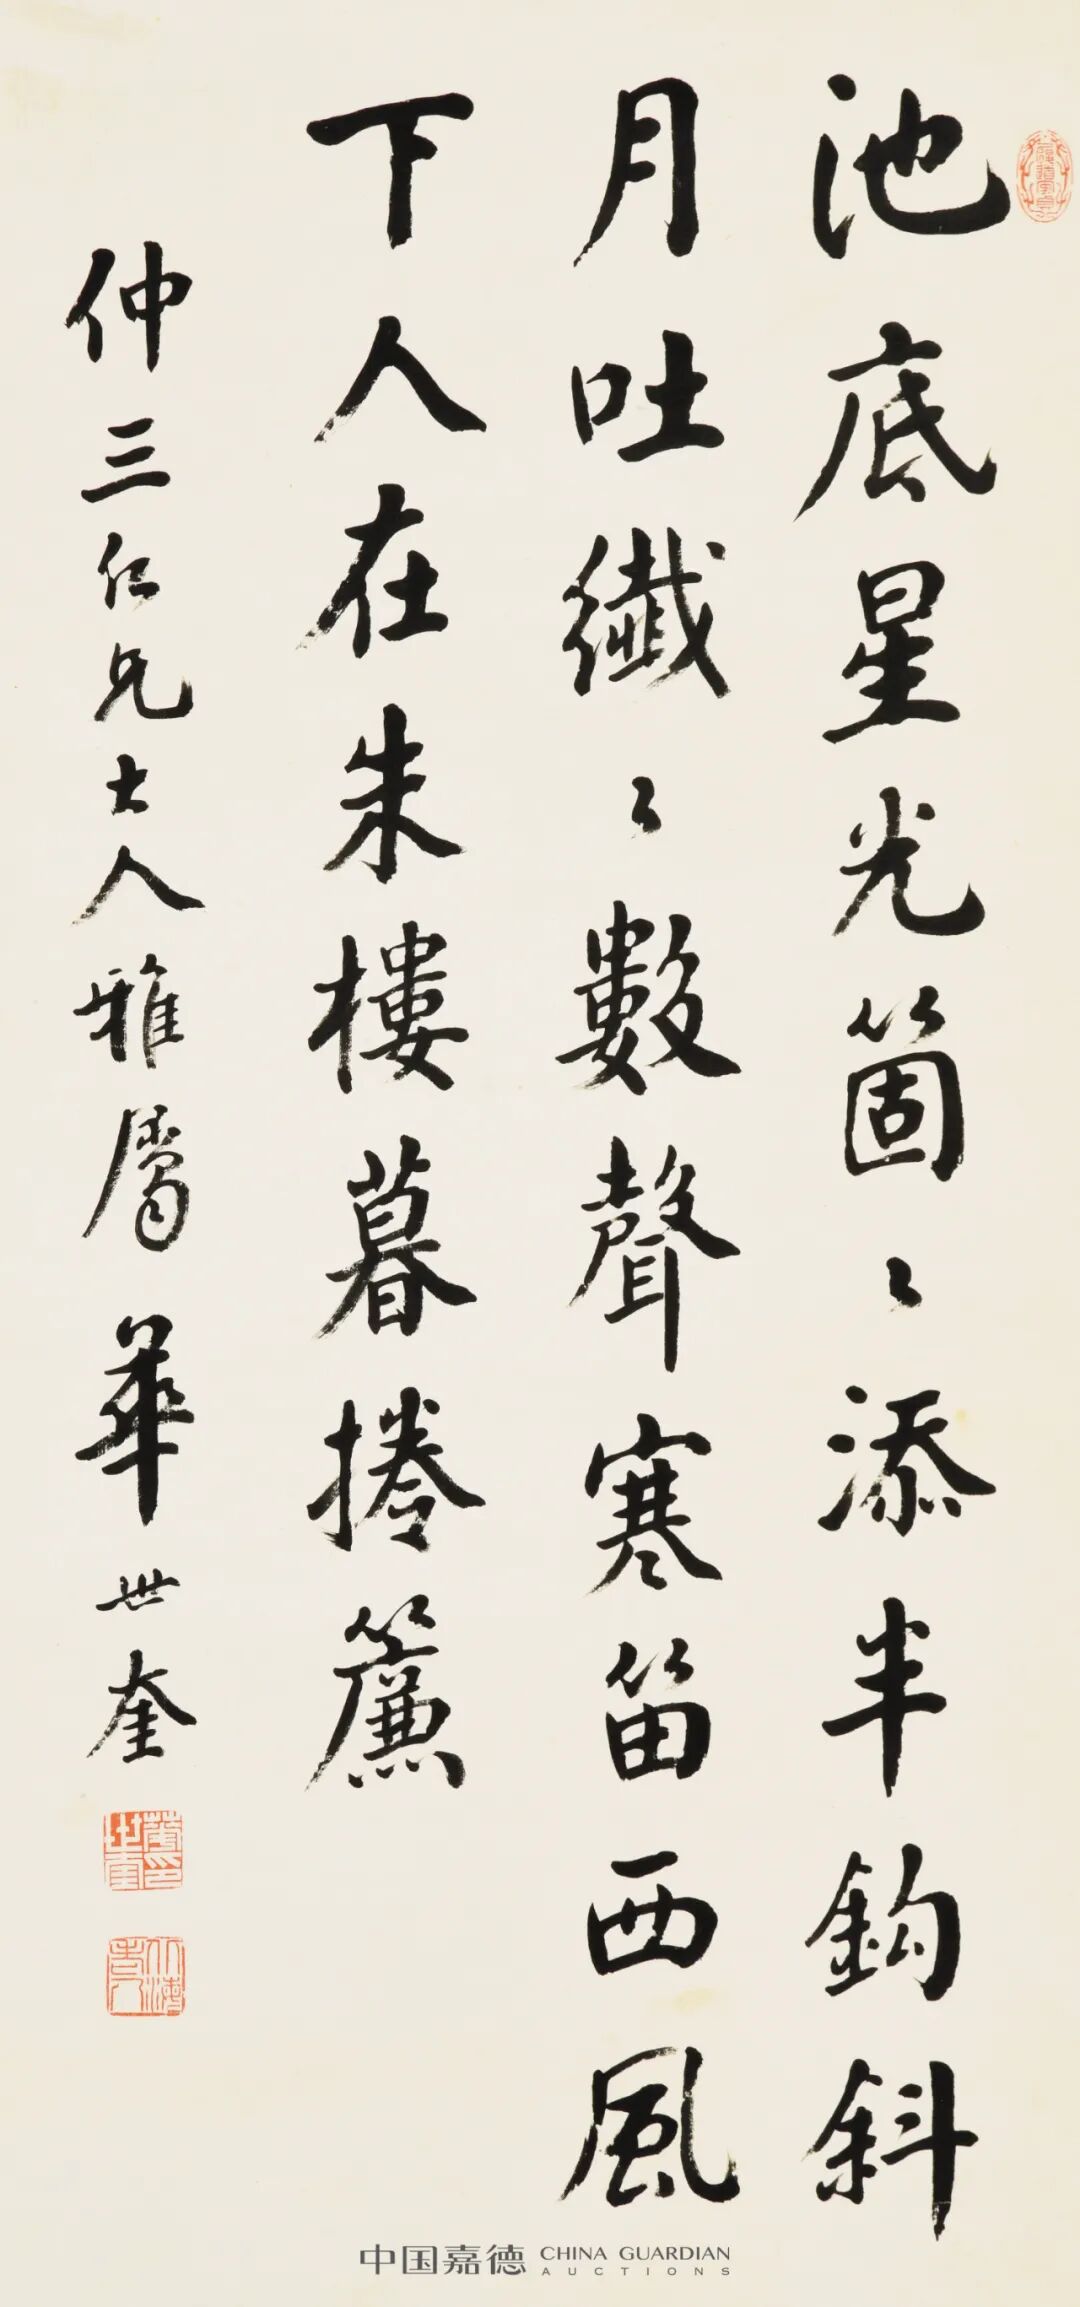 池底星光箇〻添半鈎斜
月吐纖〻數聲寒笛西風
下人在朱樓暮捲簾
仲三仁兄大人雅屬 華世奎
中国嘉德 CHINA GUARDIAN
AUCTIONS